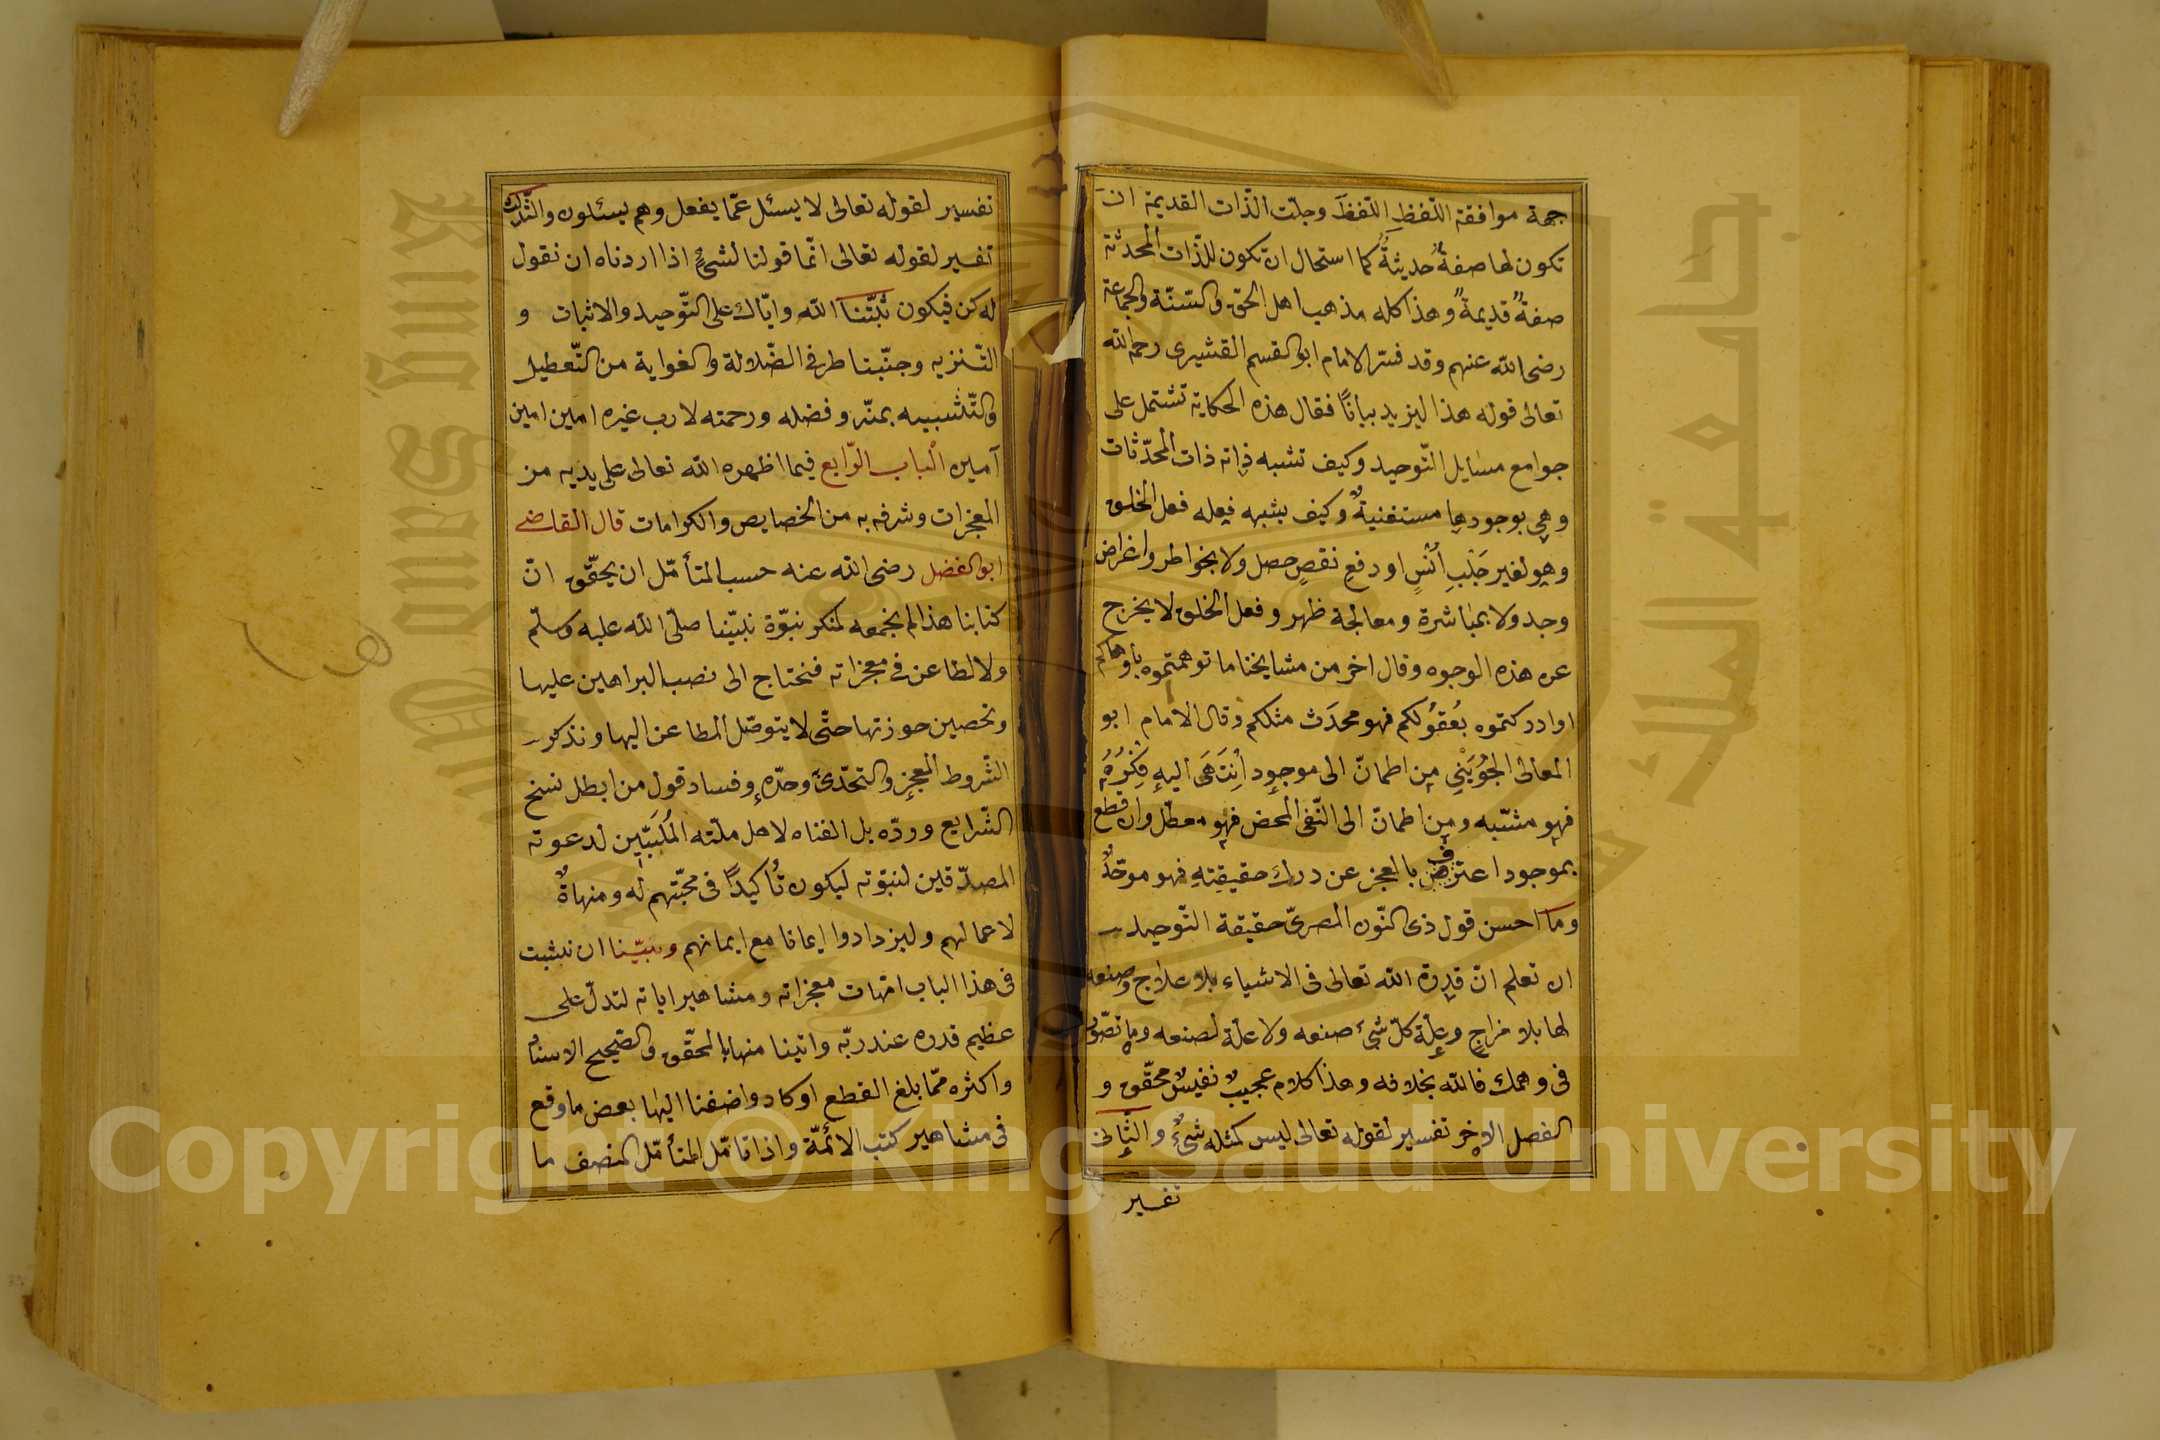 جهة موافقة اللّفظِ اللّفظَ وجلّت الذّات القديمة ان
تكون لها صفةٌ حديثةٌ كما استحال ان تكون للذّات المحدثة
صفةٌ قديمةٌ وهذا كله مذهب اهل الحقّ والسّنّة والجماعة
رضى الله عنهم وقد فسّر الامام ابو القسم القشيرى رحمه الله
تعالى قوله هذا ليزيد بيانًا فقال هذه الحكاية تشتمل على
جوامع مسايل التّوحيد وكيف تشبه ذاته ذات المحدَثات
وهى بوجودها مستغنيةٌ وكيف يشبه فعله فعل الخلق
وهو لغير جَلْبِ اُنْسٍ او دفعِ نقصٍ حصل ولا بخواطر واغراض
وجد ولا بمباشرة ومعالجة ظهر وفعل الخلق لا يخرج
عن هذه الوجوه وقال اخر من مشايخنا ما توهمتموه باوهامكم
او ادركتموه بعُقوُلكم فهو محدَث مثلكم وقال الامام ابو
المعالى الجُوَيْنِى مِن اطمانّ الى موجود اِنْتَهَى اليه فِكْرُهُ
فهو مشبّه ومن اطمانّ الى النّفى المحض فهو معطّل وان قطع
بموجود اعترف بالعجز عن درك حقيقتِهِ فهو موحّدٌ
وما احسن قول ذى النّون المصرىّ حقيقة التّوحيد
ان تعلم انّ قدرة الله تعالى فى الاشياء بلا علاج وصنعه
لها بلا مزاج وعلّة كلّ شىء صنعه ولا علّة لصنعه وما تصّور
فى وهمك فالله بخلافه وهذا كلام عجيبٌ نفيسٌ محقّق و
الفصل الاخر تفسير لقوله تعالى ليس كمثله شىءٌ والثّانى
تفسير
تفسير لقوله تعالى لا يسئل عمّا يفعل وهم يسئلون والثّالث
تفسير لقوله تعالى انّما قولنا لشىءٍ اذا اردناه ان نقول
له كن فيكون ثبّتنا الله وايّاك على التّوحيد والاثبات و
التّنزيه وجنّبنا طرفى الضّلالة والغواية من التّعطيل
والتّشبيه بمنّه وفضله ورحمته لا رب غيره امين امين
آمين الْباب الرّابع فيما اظهره الله تعالى على يديه من
المعجزات وشرفه به من الخصايص والكرامات قال القاضى
ابو الفضل رضى الله عنه حسب المتأمّل ان يحقّق انّ
كتابنا هذا لم نجمعه لمنكر نبوّة نبيّنا صلّى الله عليه وسلّم
ولا لطاعن فى معجزاته فنحتاج الى نصب البراهين عليها
وتحصين حوزتها حتّى لا يتوصّل المطاعن اليها ونذكر
الشّروط المعجز والتحدّى وحدّه وفساد قول من ابطل نسخ
الشّرايع وردّه بل الفناه لاهل ملّته المُلَبّين لدعوته
المصدّقين لنبوّته ليكون تأكيدًا فى محبّتهم له ومنهاةٌ
لاعمالهم وليزدادوا إيمانا مع ايمانهم ونيّتنا ان نثبت
فى هذا الباب امّهات معجزاته ومشاهير اياته لتدلّ على
عظيم قدره عند ربّه واتينا منها بالمحقّق والصّحيح الاسناد
واكثره ممّا بلغ القطع او كاد واضفنا اليها بعض ما وقع
فى مشاهير كتب الائمّة واذا تأمّل المتأمّل المنصف ما